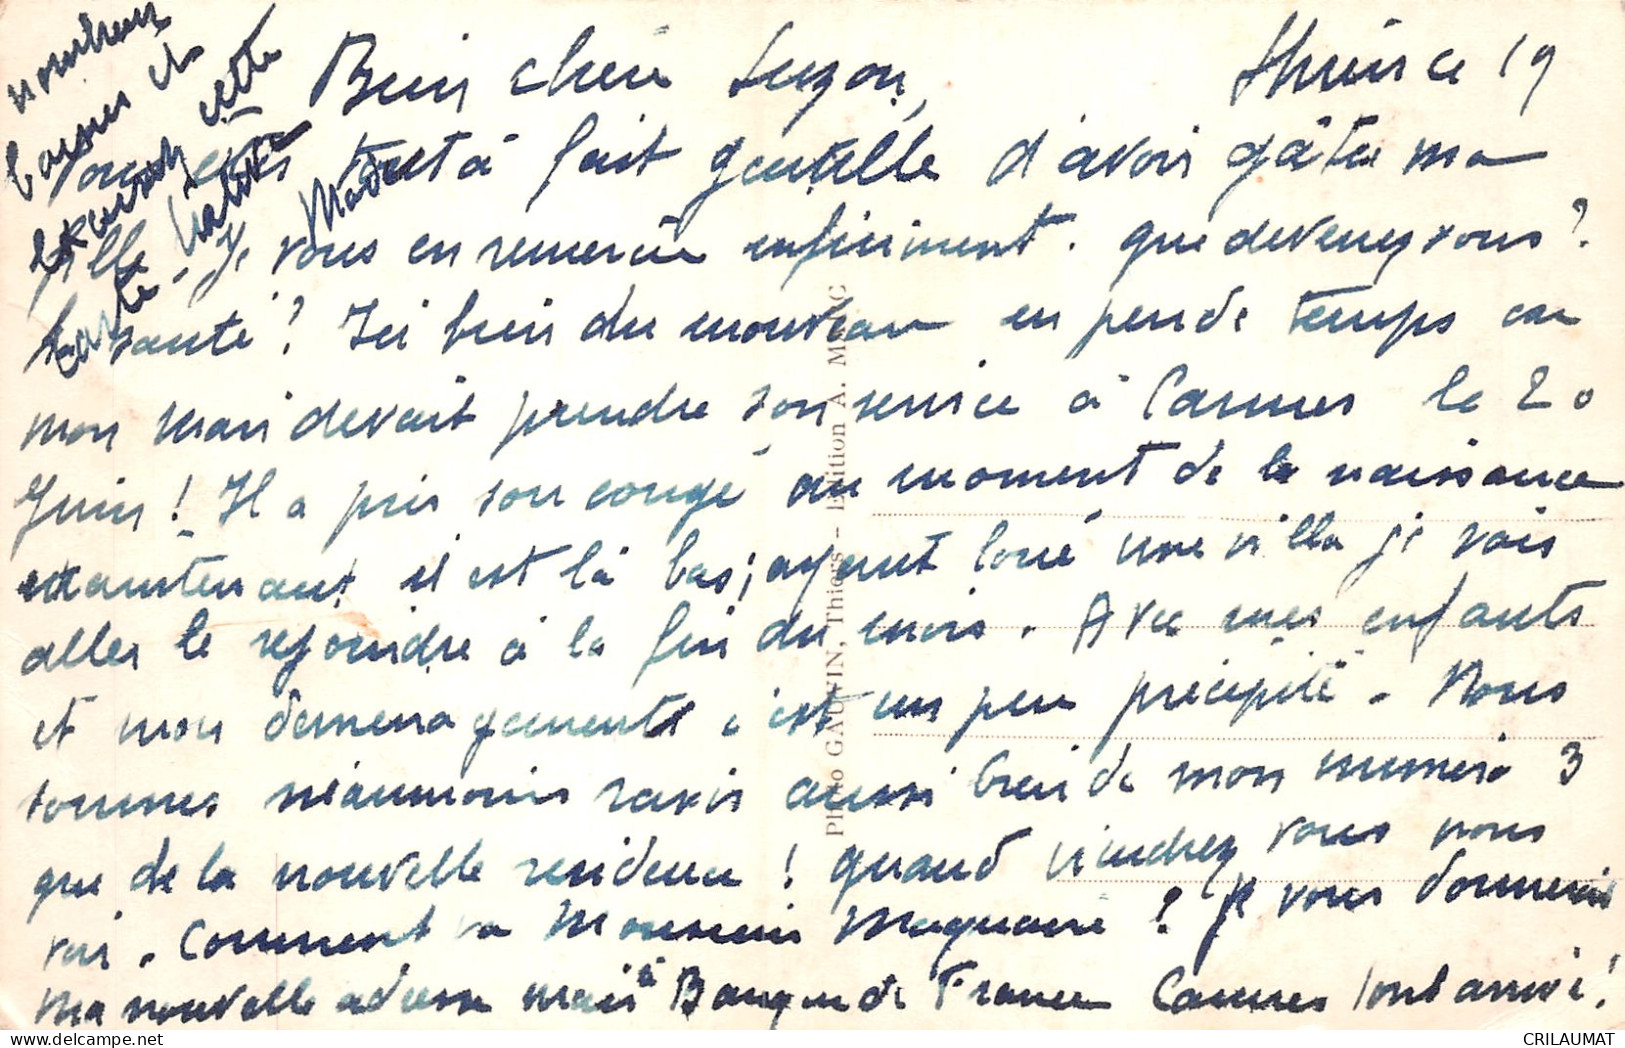 Bien chère Suzon, Thiers ce 19
Vous êtes tout à fait gentille d'avoir gâtée ma
fille - Je vous en remercie infiniment. que devenez vous ?
La santé ? Ici bien du nouveau en peu de temps car
mon mari devait prendre son service à Cannes le 20
Juin ! Il a pris son congé au moment de la naissance
maintenant il est là bas ; ayant loué une villa je vais
aller le rejoindre à la fin du mois. Avec mes enfants
et mon demenagement c'est un peu précipité. Nous
sommes néanmoins ravis aussi bien de mon numero 3
que de la nouvelle residence ! quand viendrez vous nous
voir. Comment va Monsieur Maquaire ? Je vous donnerai
ma nouvelle adresse mais à Banque de France Cannes tout arrive !
nombreux
baisers et
cette
carte
Photo GAUVIN, Thiers — Edition A. M C
CRILAUMAT